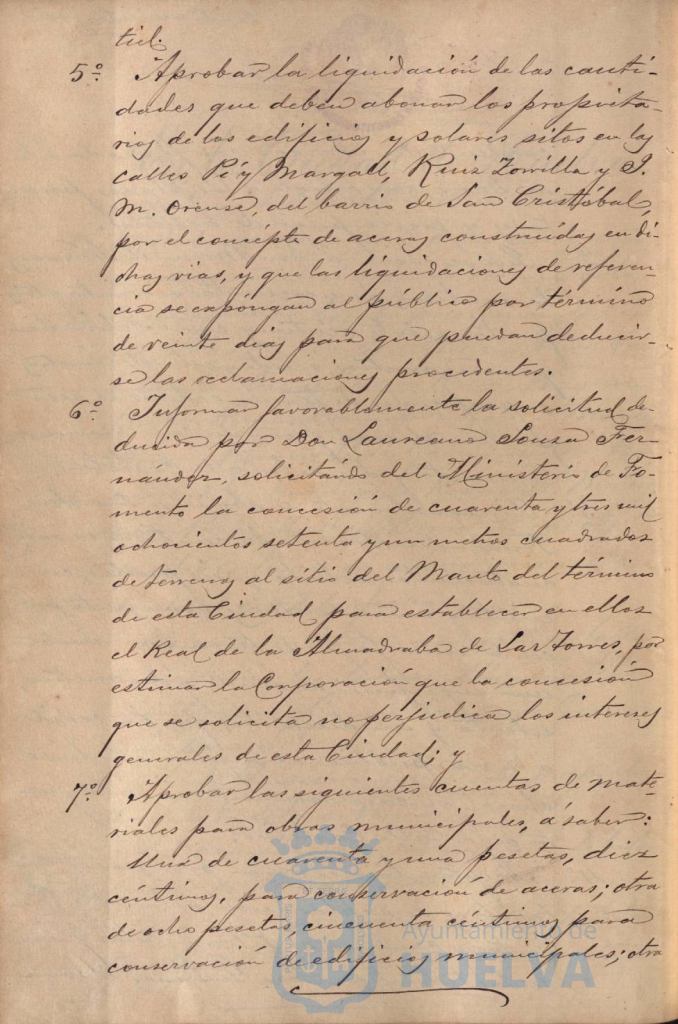 tiel.
5º Aprobar la liquidación de las canti-
dades que deben abonar los propieta-
rios de los edificios y solares sitos en las
calles Pí y Margall, Ruiz Zorrilla y J.
M. Orense, del barrio de San Cristóbal,
por el concepto de aceras construídas en di-
chas vias, y que las liquidaciones de referen-
cia se expóngan al público por término
de veinte dias para que puedan deducir-
se las reclamaciones procedentes.
6º Informar favorablemente la solicitud de-
ducida por Don Laureano Sousa Fer-
nández, solicitándo del Ministerio de Fo-
mento la concesión de cuarenta y tres mil
ochocientos setenta y un metros cuadrados
de terrenos al sitio del Manto del término
de esta Ciudad para establecer en ellos
el Real de la Almadraba de Las Torres, por
estimar la Corporación que la concesión
que se solicita no perjudica los intereses
generales de esta Ciudad; y
7º Aprobar las siguientes cuentas de mate-
riales para obras municipales, á saber:
Una de cuarenta y una pesetas, diez
céntimos, para conservación de aceras; otra
de ocho pesetas, cincuenta céntimos para
conservación de edificios municipales; otra
Ayuntamiento de
HUELVA